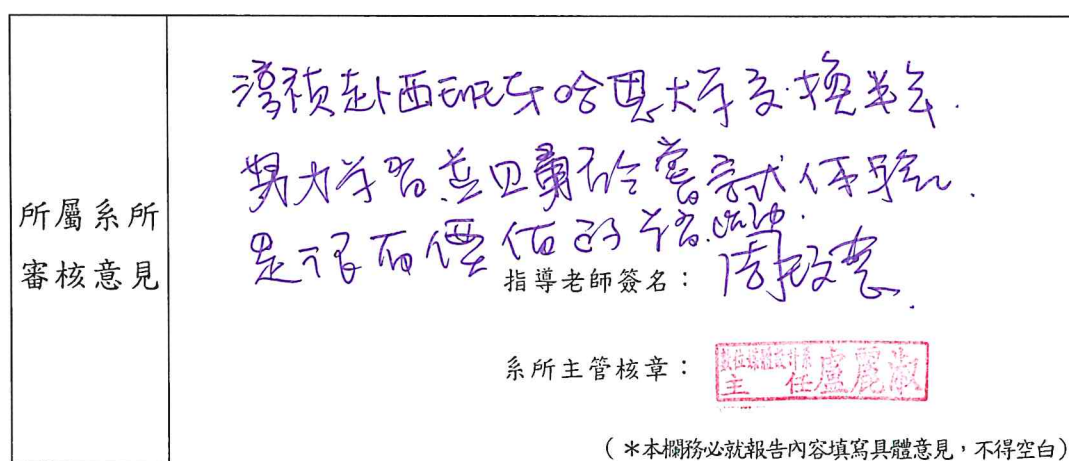 所屬系所
審核意見
禎赴西班牙哈恩大學交換半年.
努力學習並且勇於嘗試体驗.
是很有價值的
指導老師簽名：周玫慧
系所主管核章：
數位媒體設計系
主任盧麗淑
（＊本欄務必就報告內容填寫具體意見，不得空白）